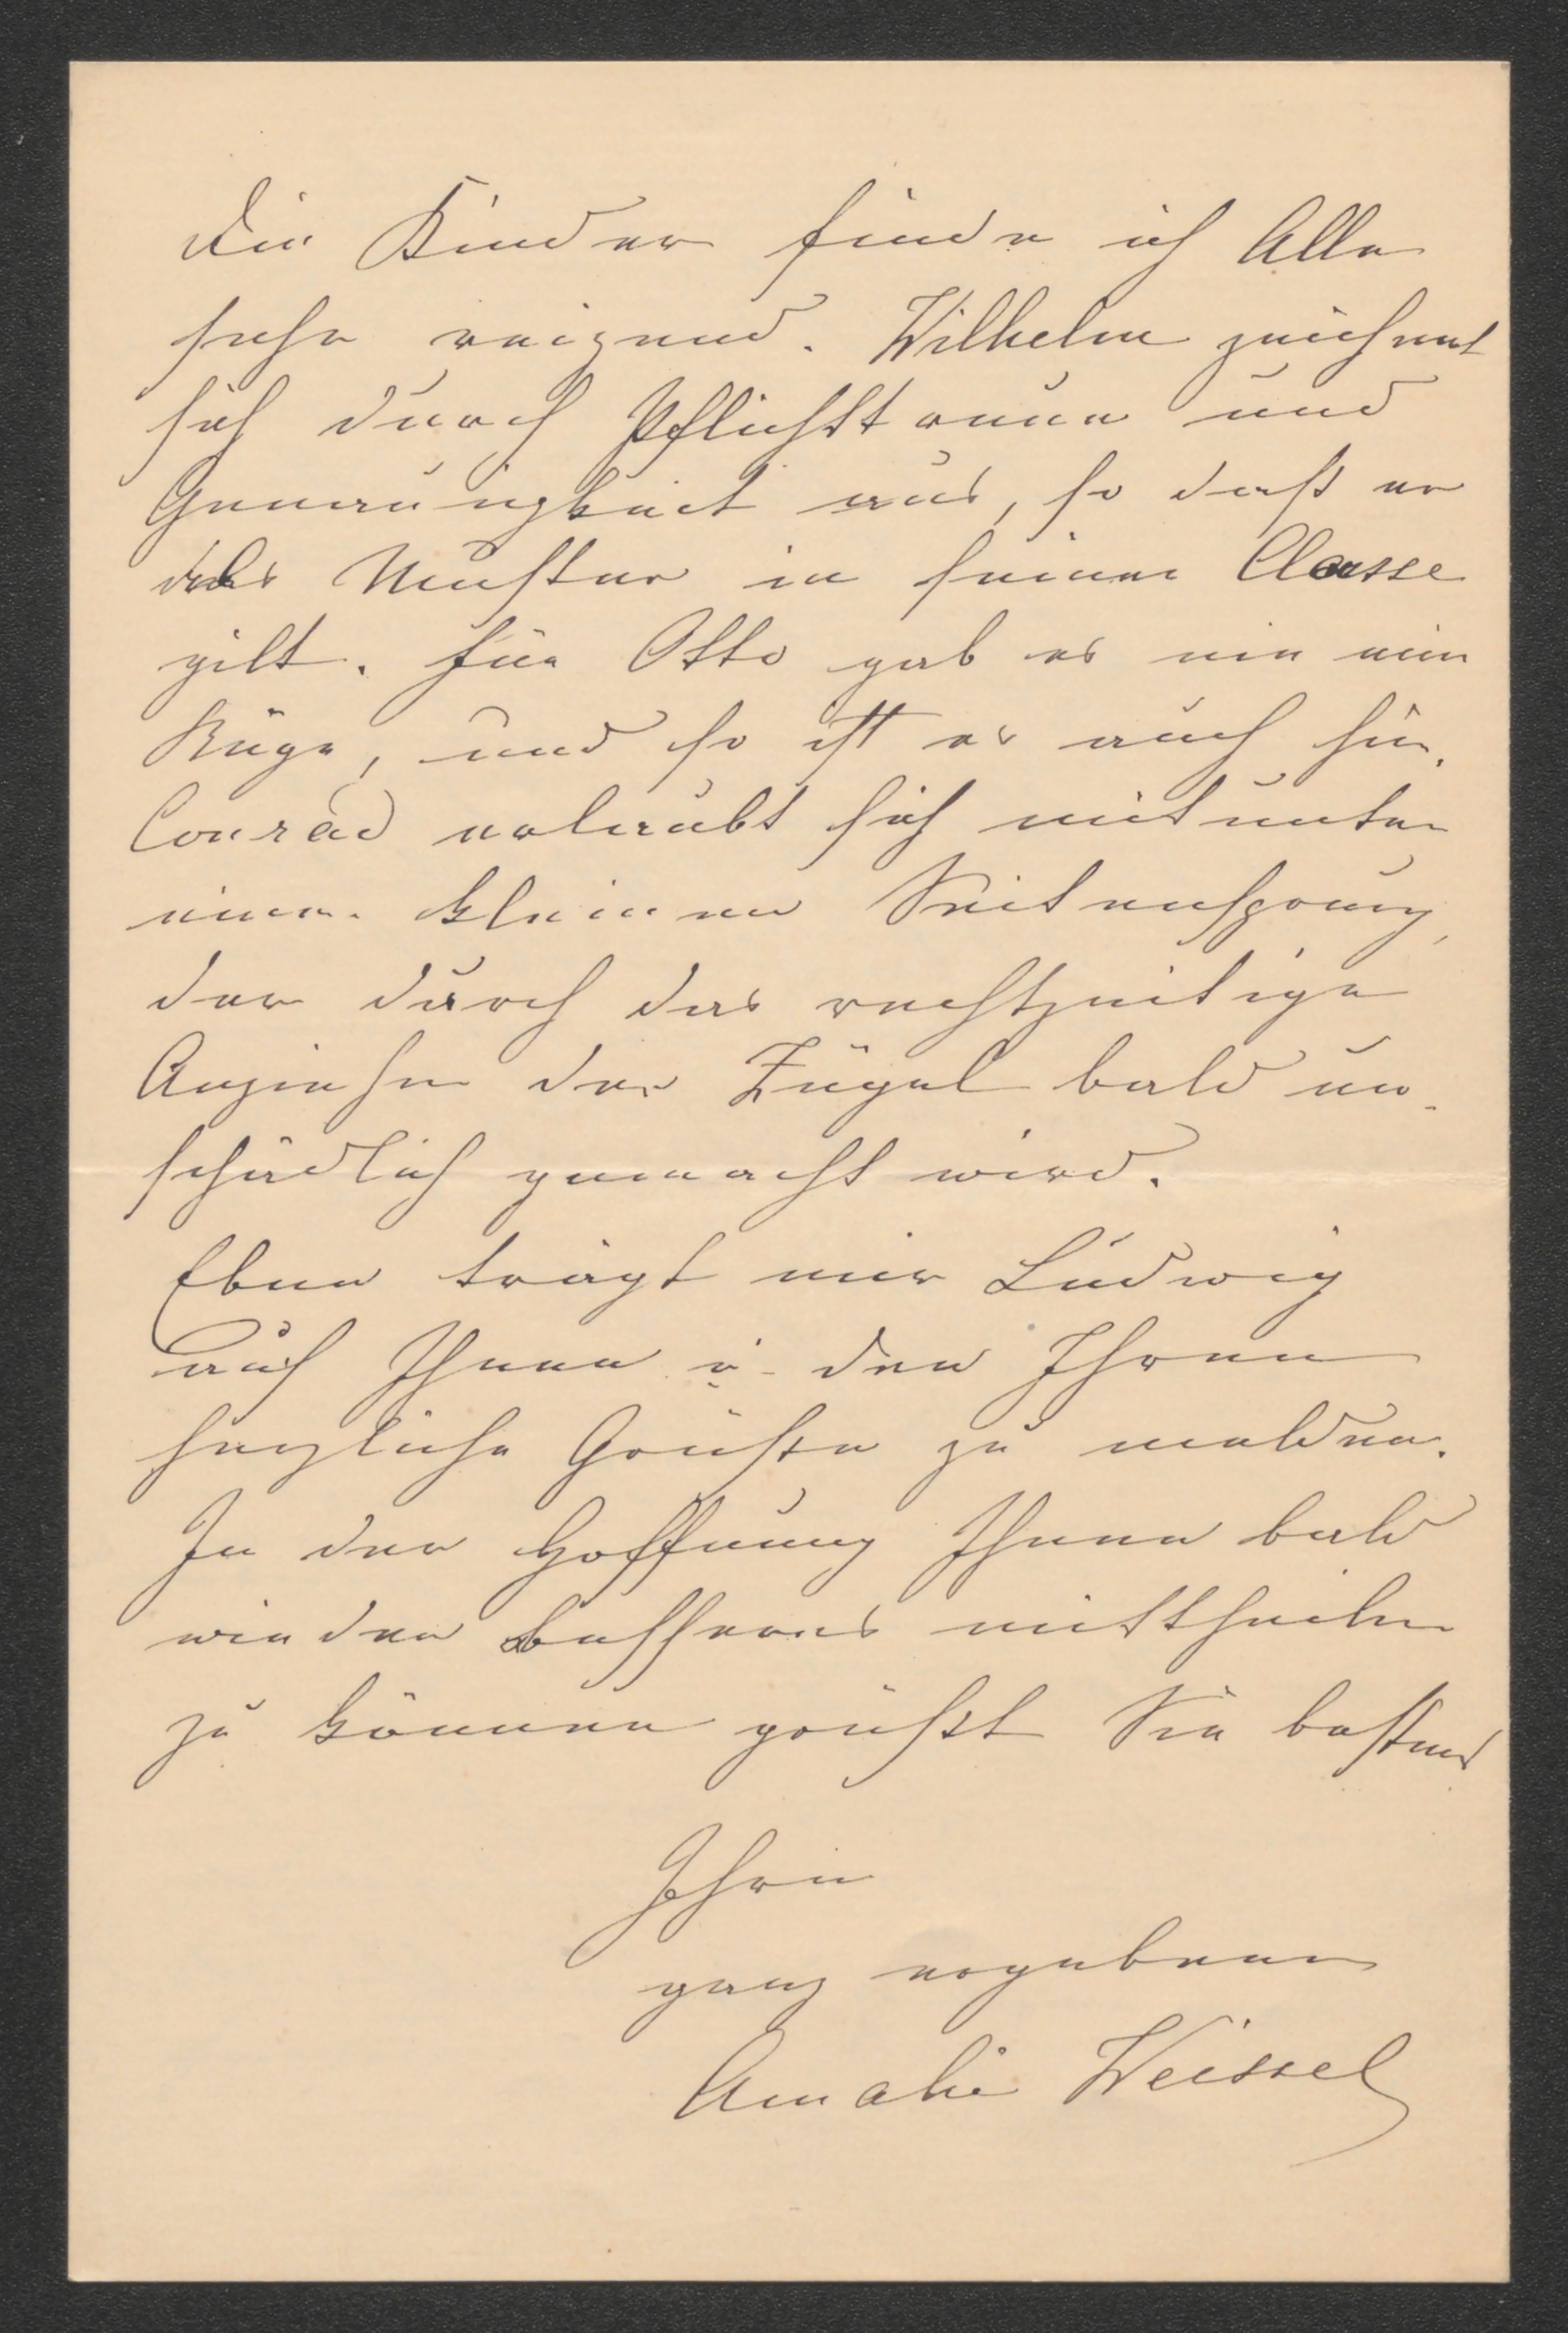 Die Kinder finde ich Alle
sehr reizend. Wilhelm zeichnet
sich durch Pflichttreue und
Genauigkeit aus, so daß er
als Muster in seiner Classe
gilt. Für Otto gab es nie eine
Rüge, und so ist es auch hier.
Conrad erlaubt sich mitunter
einen kleinen Seitensprung,
der durch das rechtzeitige
Anziehen der Zügel bald un-
schädlich gemacht wird.
Eben trägt mir Ludwig
auf Ihnen u. den Ihren
herzliche Grüße zu melden.
In der Hoffnung Ihnen bald
wieder Besseres mittheilen
zu können grüßt Sie bestens
Ihre
ganz ergebene
Amalie Weissel